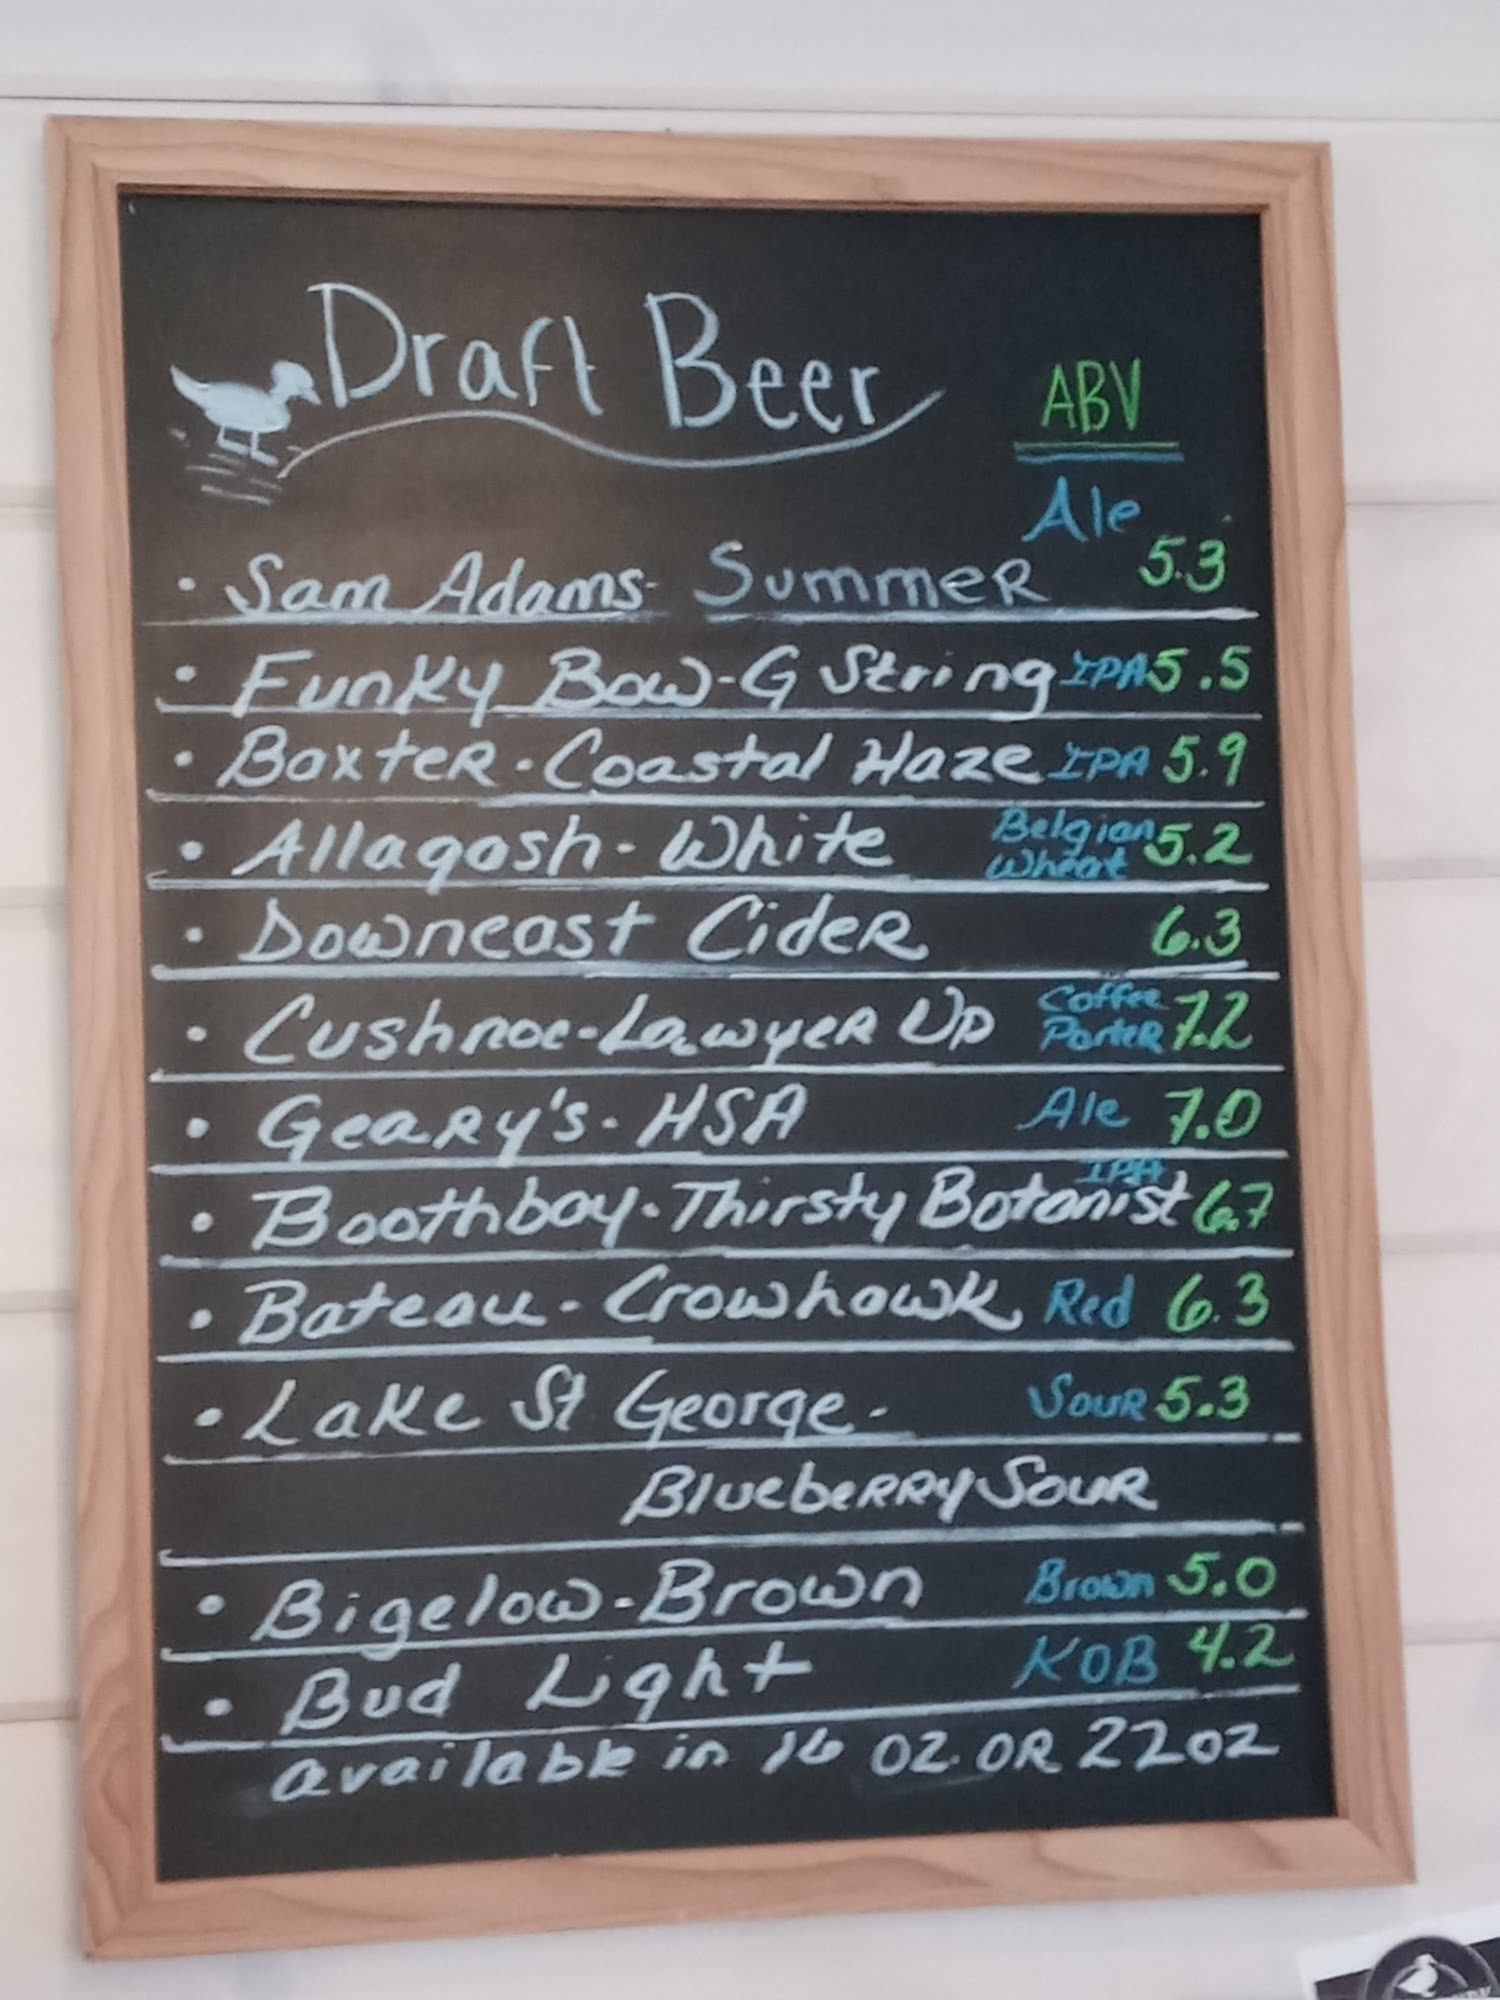 Draft Beer ABV
Ale
• Sam Adams Summer 5.3
• Funky Bow-G String IPA 5.5
• Baxter-Coastal Haze IPA 5.9
• Allagash-White Belgian Wheat 5.2
• Downeast Cider 6.3
• Cushnoc-Lawyer Up Coffee Porter 7.2
• Geary's-HSA Ale 7.0
• Boothbay-Thirsty Botanist IPA 6.7
• Bateau-Crowhawk Red 6.3
• Lake St George- Sour 5.3
Blueberry Sour
• Bigelow-Brown Brown 5.0
• Bud Light KOB 4.2
available in 16 oz. or 22oz